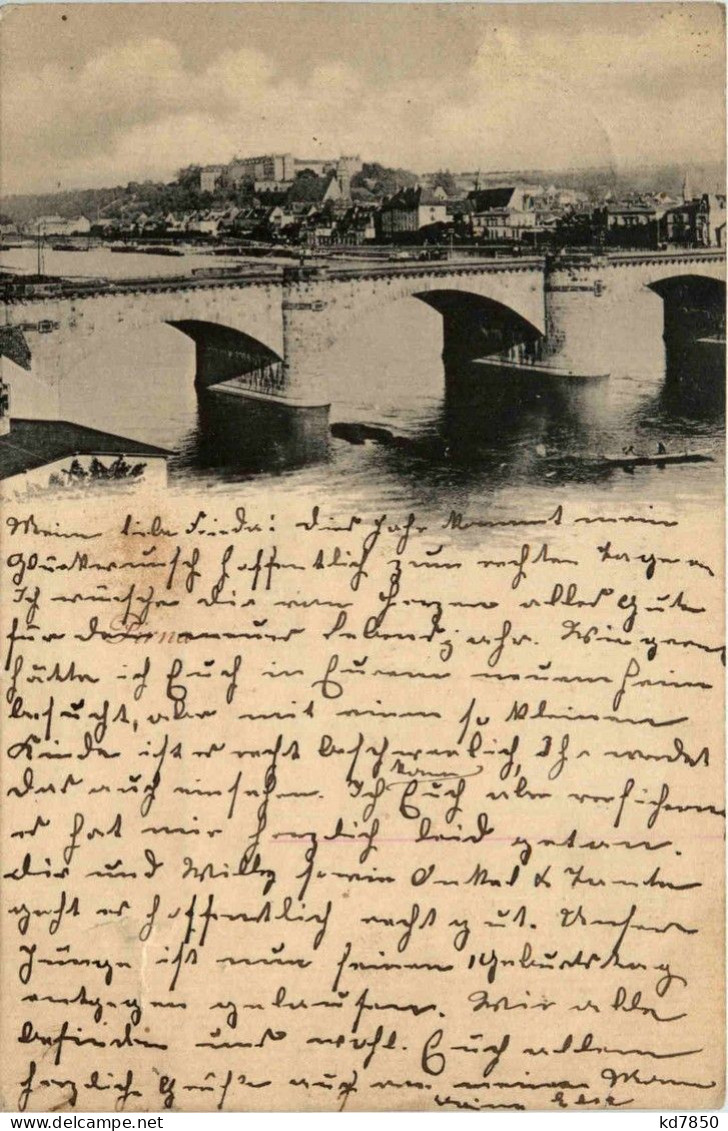 Meine liebe Frieda! Dies Jahr kommt mein
Glückwunsch hoffentlich zum rechten Tage an
Ich wünsche dir von Herzen alles Gute
für das neues Lebensjahr. Wie gern
Pirna
hätte ich Euch in Eurem neuen Heim
besucht, aber mit einem so kleinen
Kinde ist es recht beschwerlich, Ihr werdet
das auch einsehen. Ich kann Euch aber versichern
es hat mir herzlich leid getan.
Dir und Willy sowie Onkel & Tante
geht es hoffentlich recht gut. Unser
Junge ist nun seinem 1 Geburtstag
entgegen gelaufen. Wir alle
befinden uns wohl. Euch allen
herzliche Grüße auch von meinem Mann
deine Else
kd7850
DELCAMPE.NET